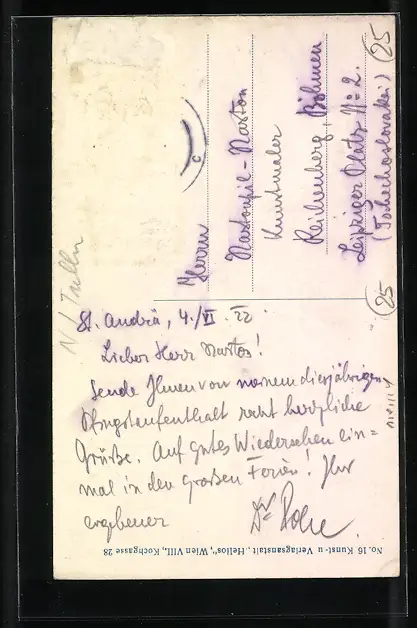 Herrn
Nastoupil-Naston
Kunstmaler
Reichenberg, Böhmen
Leipziger Platz No 2.
(Tschechoslovakei)
25
25
N/Tulln
St. Andrä, 4./VI. 22.
Lieber Herr Naston!
Sende Ihnen von meinem diesjährigen
Pfingstaufenthalt recht herzliche
Grüße. Auf gutes Wiedersehen ein=
mal in den großen Ferien! Ihr
ergebener Dr
No. 16 Kunst- u Verlagsanstalt „Helios", Wien VIII., Kochgasse 28